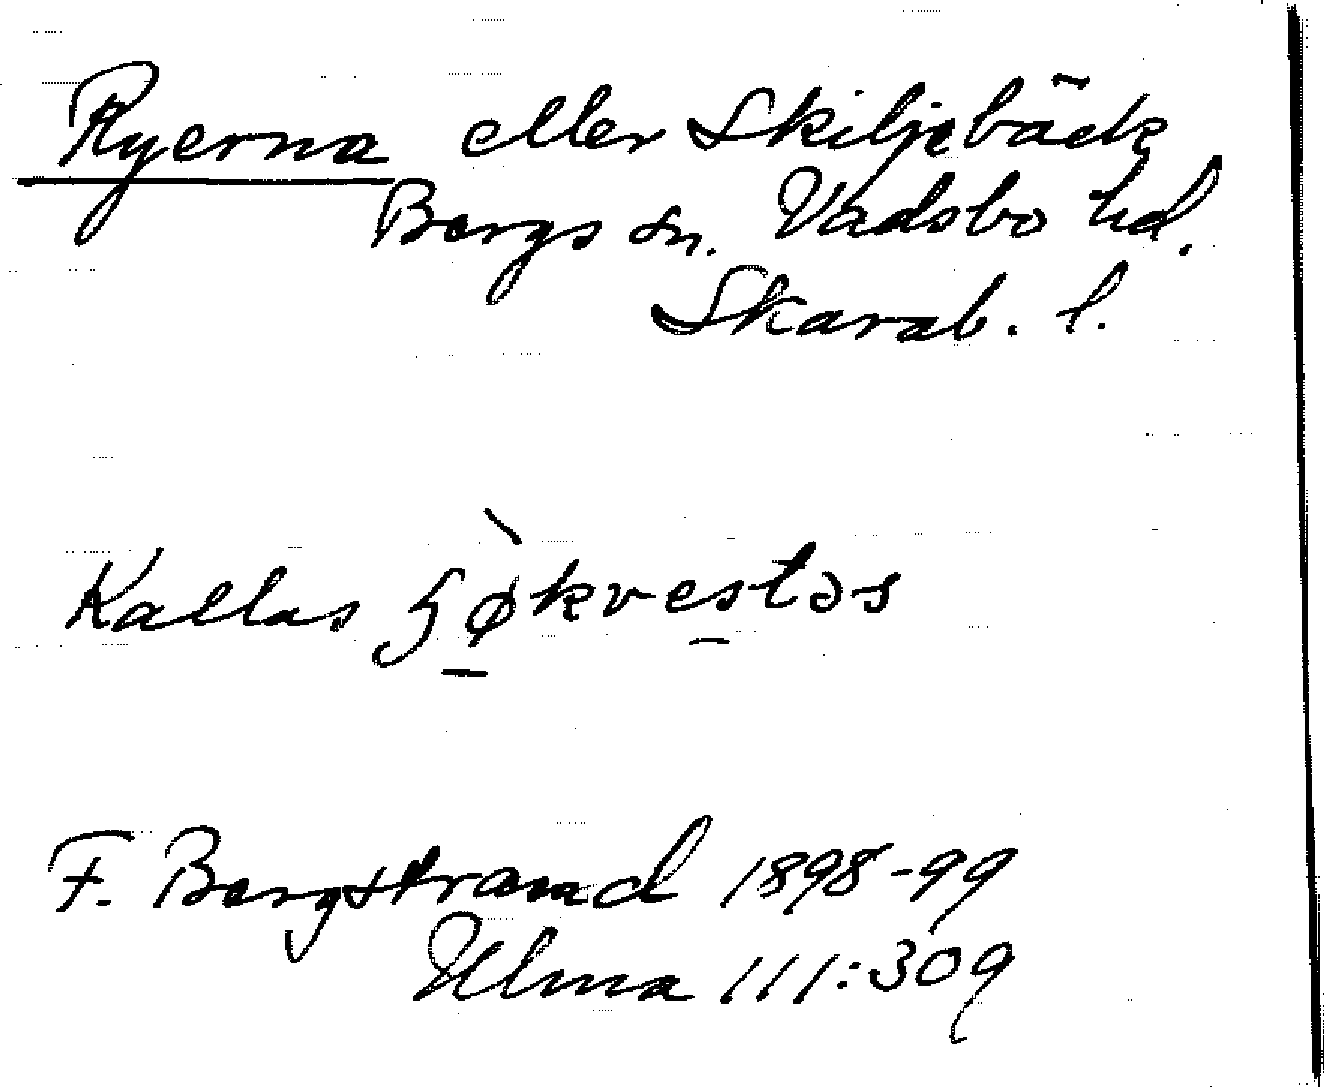 Ryerna eller Skiljebäck
Bergs sn. Vadsbo hd.
Skarab. l.
Kallas
F. Bergstrand 1898-99
Ulma 111:309